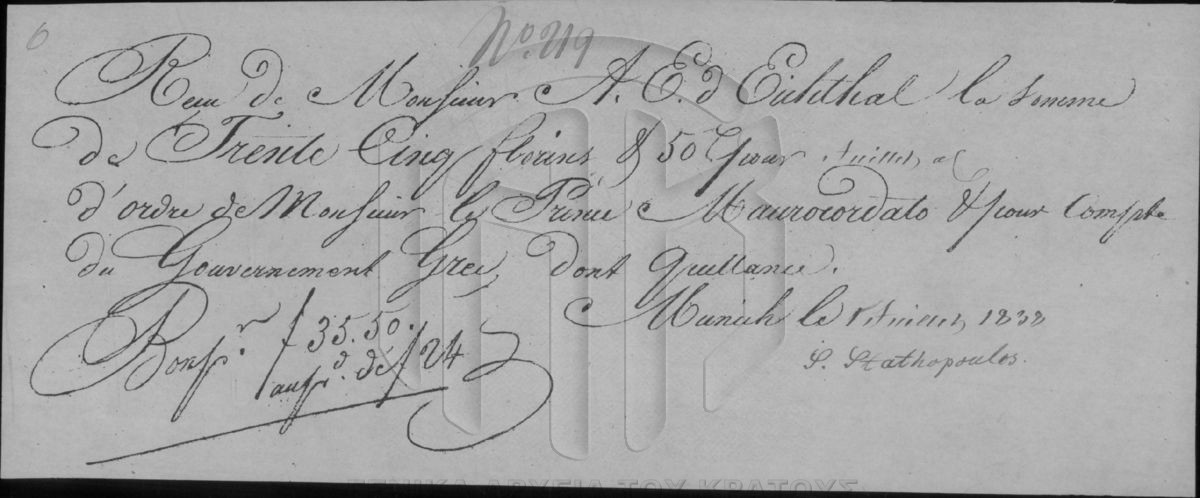 6
No. 219
Reçu de Monsieur A. E. d'Eichthal la somme
de Trente Cinq florins & 50 Xr pour
d'ordre de Monsieur le Prince Maurocordato & pour Compte
du Gouvernement Grec, dont quittance.
Munich le 1838
Bon pr. f 35.50.
au pd. de f 24
S. Stathopoulos.
ΓΕΝΙΚΑ ΑΡΧΕΙΑ ΤΟΥ ΚΡΑΤΟΥΣ